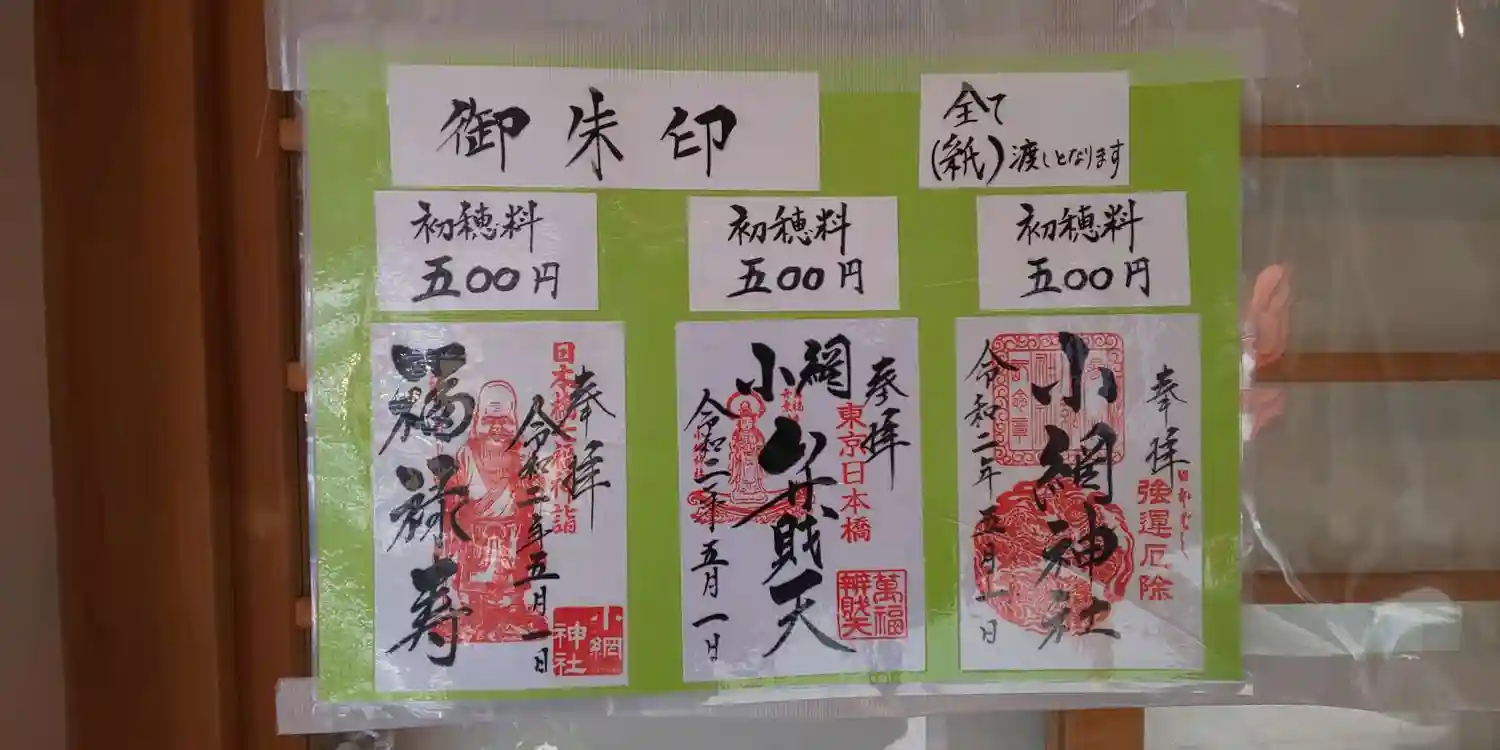 御朱印
全て
(紙)渡しとなります
初穂料
五〇〇円
初穂料
五〇〇円
初穂料
五〇〇円
奉拝
日本橋七福神詣
令和二年五月一日
福禄寿
小網
神社
奉拝
東京日本橋
小網
弁財天
令和二年五月一日
萬福
辨財天
奉拝
強運厄除
小網神社
令和二年五月一日